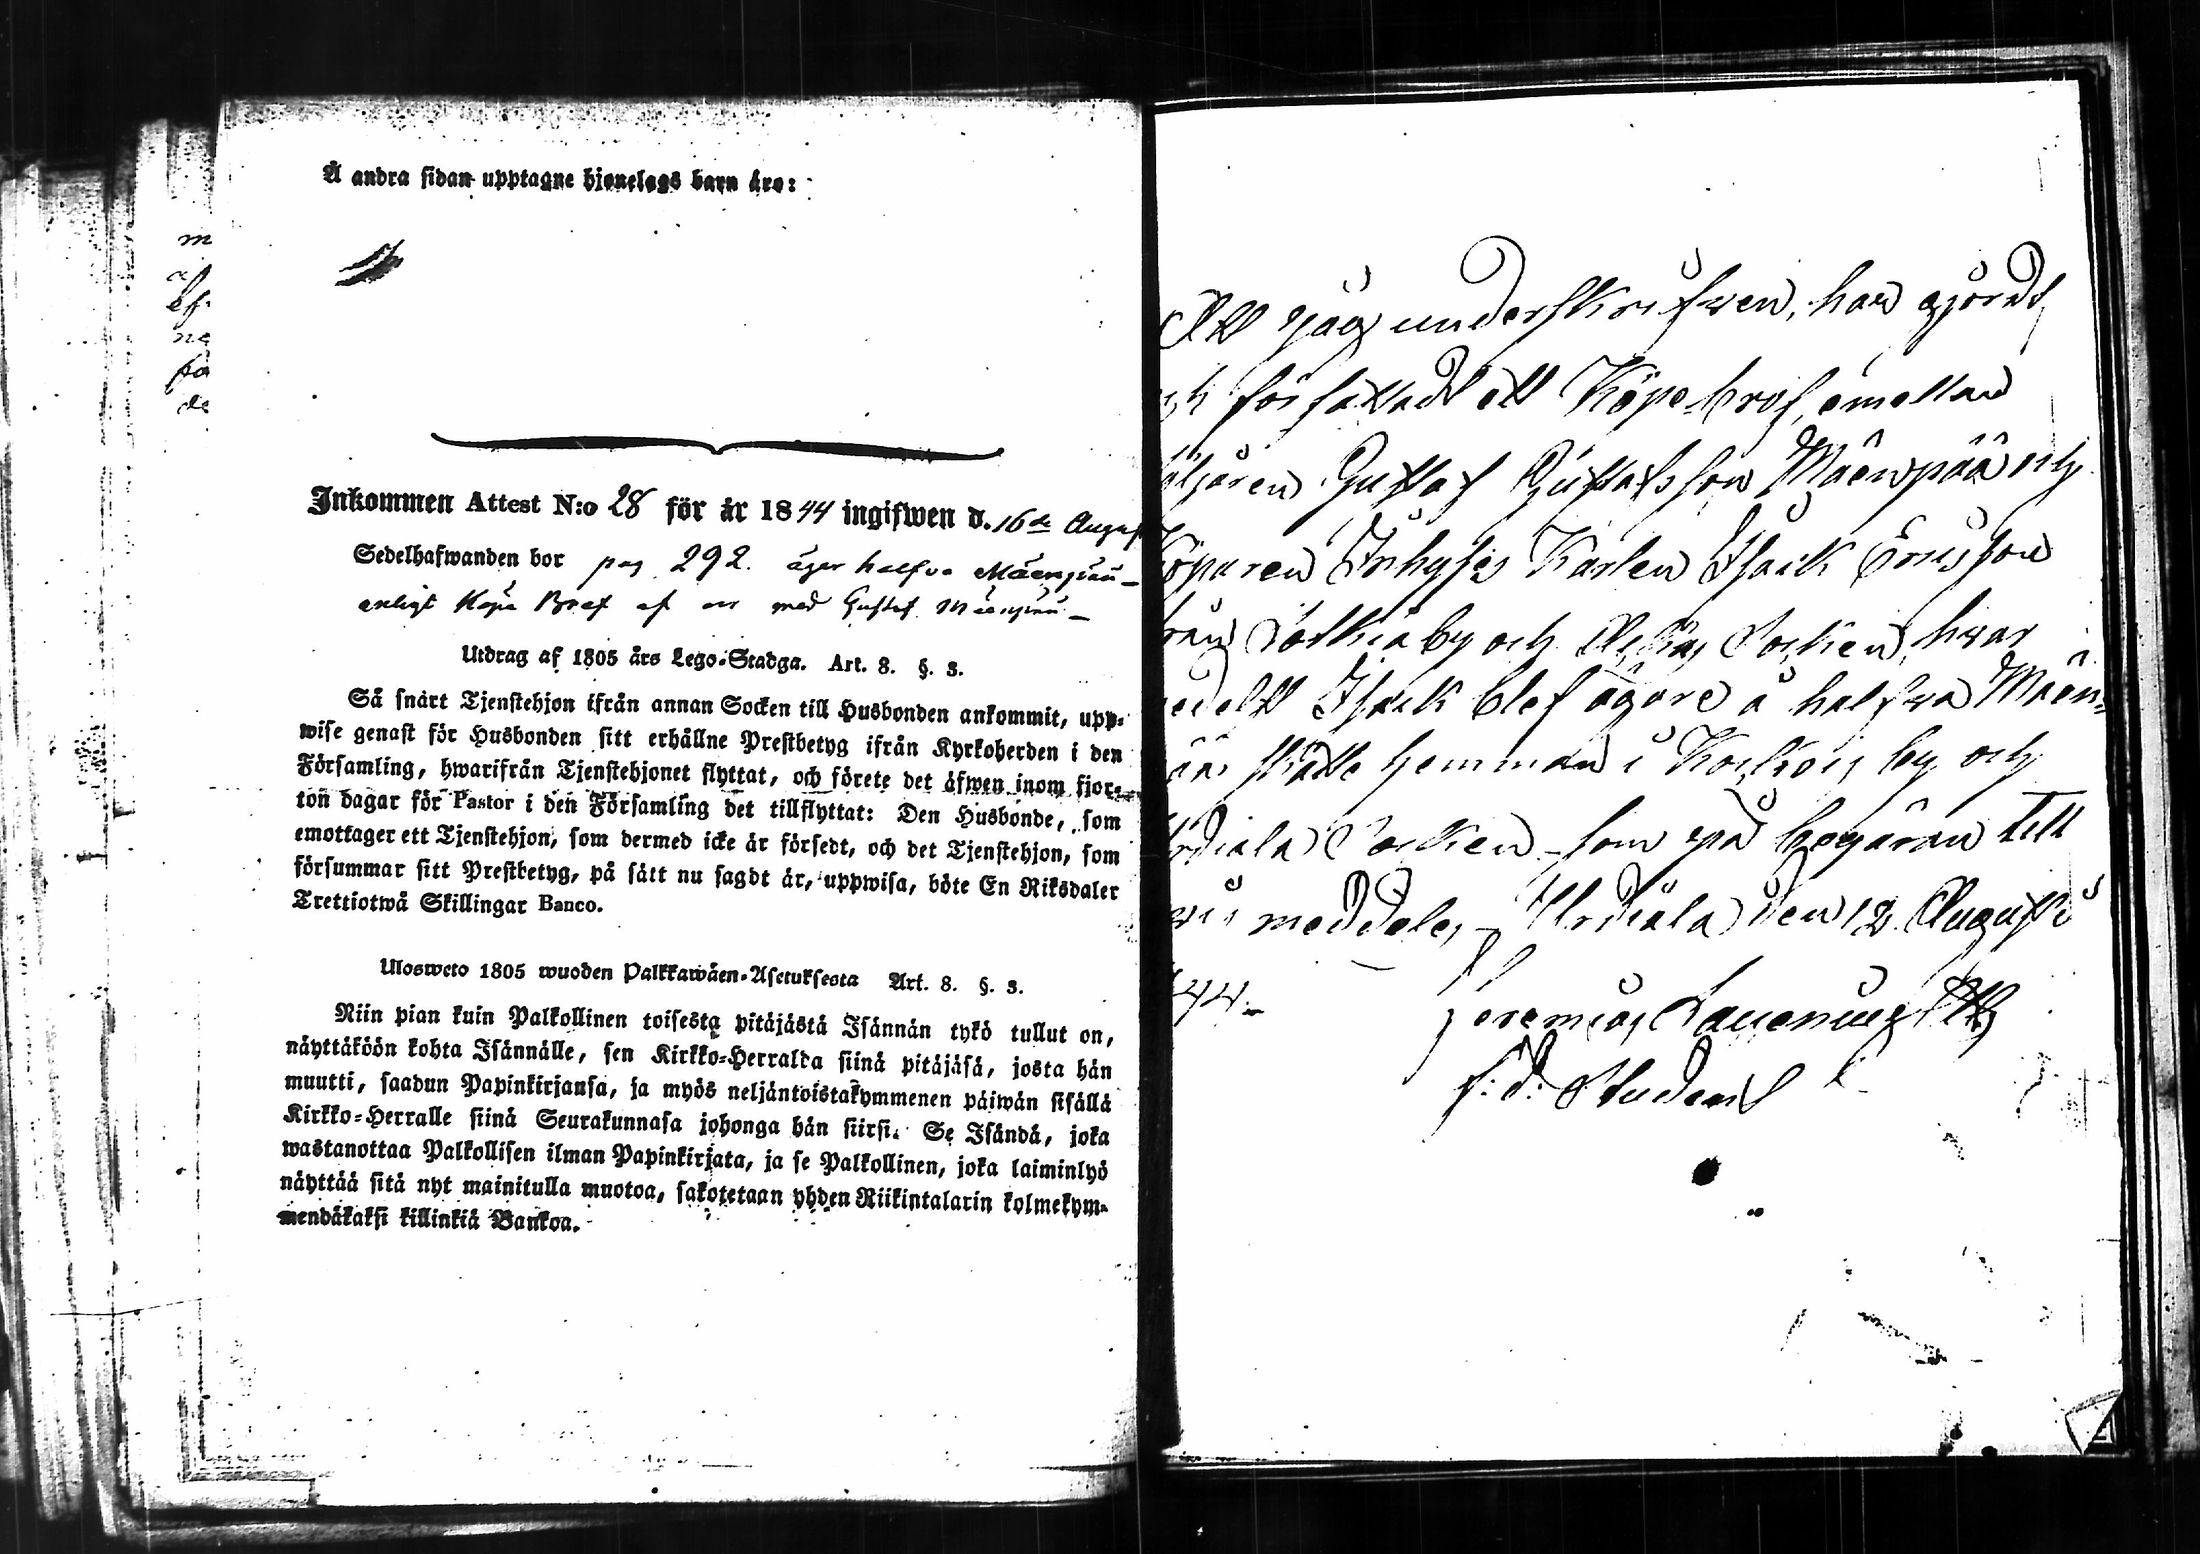 m
af
ef
ne
fö
de
Å andra sidan upptagne hjonelags barn äro:
Inkommen Attest N:o 28 för år 1844 ingifwen d. 16de Augus
Sedelhafwanden bor pag 292. äger halfva Mäenpää
enligt Köpe Bref af med Gustaf Mäenpää
Utdrag af 1805 års Lego-Stadga. Art. 8. §. 3.
Så snart Tjenstehjon ifrån annan Socken till Husbonden ankommit, upp-
wise genast för Husbonden sitt erhållne Prestbetyg ifrån Kyrkoherden i den
Församling, hwarifrån Tjenstehjonet flyttat, och förete det äfwen inom fjor-
ton dagar för Pastor i den Församling det tillflyttat: Den Husbonde, som
emottager ett Tjenstehjon, som dermed icke är försedt, och det Tjenstehjon, som
försummar sitt Prestbetyg, på sätt nu sagdt är, uppwisa, böte En Riksdaler
Trettiotwå Skillingar Banco.
Ulosweto 1805 wuoden Palkkawäen-Asetuksesta Art. 8. §. 3.
Niin pian kuin Palkollinen toisesta pitäjästä Isännän tykö tullut on,
näyttäköön kohta Isännälle, sen Kirkko-Herralda siinä pitäjäsä, josta hän
muutti, saadun Papinkirjansa, ja myös neljäntoistakymmenen päiwän sisällä
Kirkko-Herralle siinä Seurakunnasa johonga hän siirsi. Se Isändä, joka
wastanottaa Palkollisen ilman Papinkirjata, ja se Palkollinen, joka laiminlyö
näyttää sitä nyt mainitulla muotoa, sakotetaan yhden Riikintalarin kolmekym-
mendäkaksi killinkiä Bankoa.
Att jag underskrifwen, har gjordt
författadt ett Köpebref, emellan
äljaren Gustaf Gustafsson Mäenpää och
Köparen Inhyses Karlen Isaak Ericsson
från by och Socken, hwar
medelst Isaak blef ägare å halfwa Mäen-
pää Skatte hemman i Koskois by och
rdiala Socken – som på begäran till
wis meddeles – Urdiala den 12 Augusti
44.
Jeremias
f: d: Student